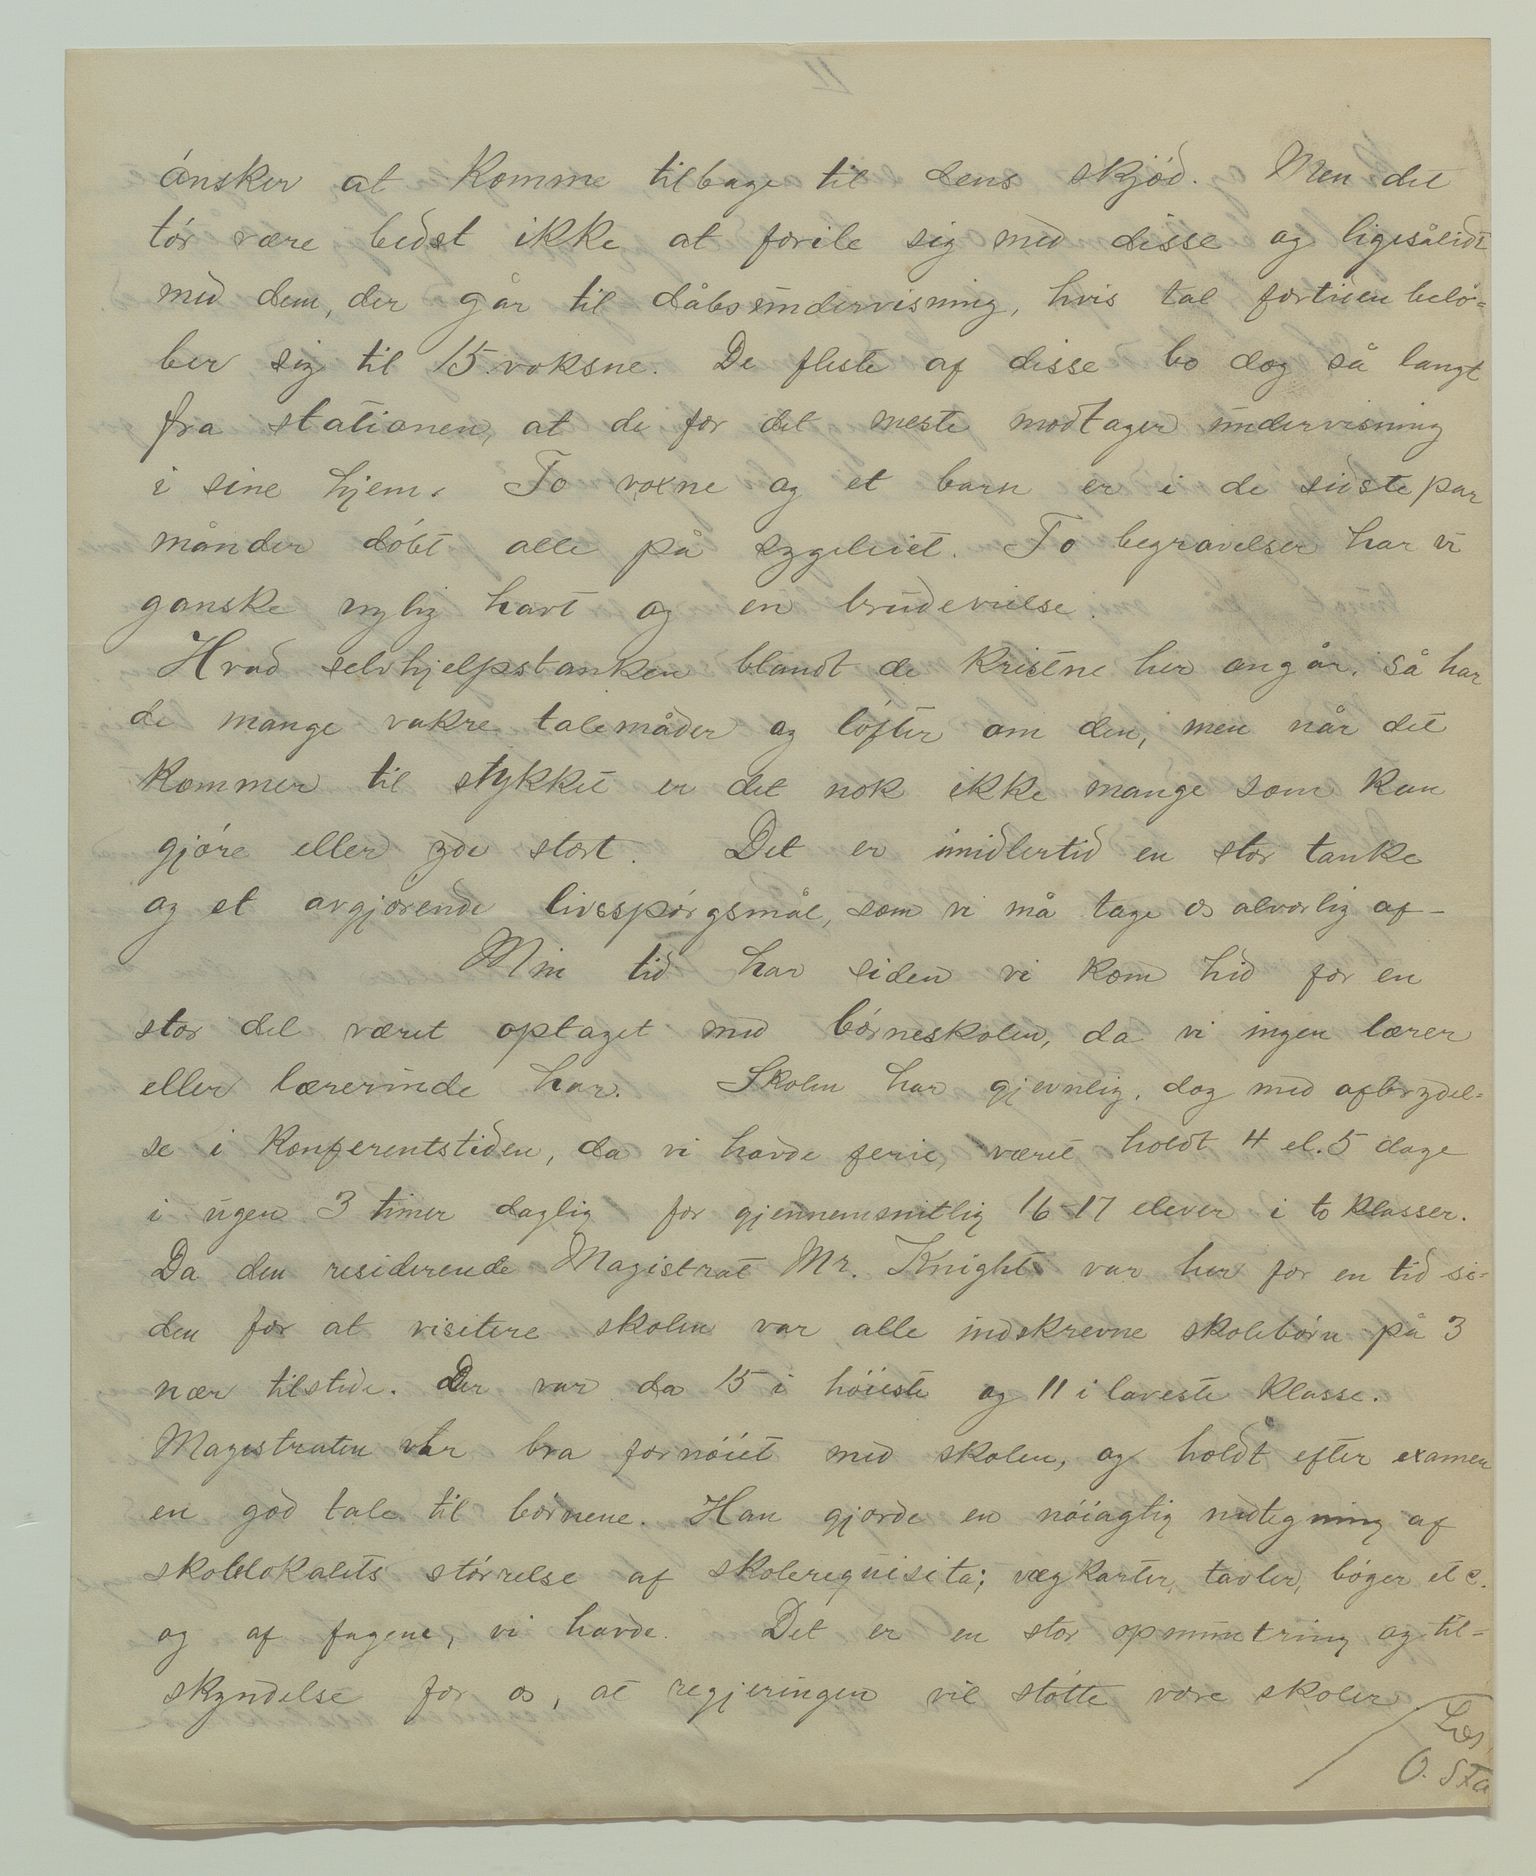 ónsker at komme tilbage til dens skjód. Men det
tór være bedst ikke at forile sig med disse og ligesålidt
med dem, der går til dåbsundervisning, hvis tal fortiden beló-
ber sig til 15 voksne. De fleste af disse bo dog så langt
fra stationen, at de for det meste modtager undervisning
i sine hjem. To voxne og et barn er i de sidste par
månder dóbt alle på sygeleiet. To begravelser har vi
ganske nylig havt og en brudevielse.
Hvad selvhjelpstanken blandt de kristne her angår, så har
de mange vakre talemåder og lófter om den, men når det
kommer til stykket er det nok ikke mange som kan
gjóre eller yde stort. Det er imidlertid en stor tanke
og et avgjorende livsspórgsmål, som vi må tage os alvorlig af –
Min tid har siden vi kom hid for en
stor del været optaget med bórneskolen, da vi ingen lærer
eller lærerinde har. Skolen har gjevnlig, dog med afbrydel-
se i konferentstiden, da vi havde ferie, været holdt 4 el. 5 dage
i ugen 3 timer daglig for gjennemsnitlig 16-17 elever i to klasser.
Da den residerende Magistrat Mr. Knight var her for en tid si-
den for at visitere skolen var alle indskrevne skolebórn på 3
nær tilstede. Der var da 15 i hóieste og 11 i laveste klasse.
Magistraten var bra fornóiet med skolen, og holdt efter examen
en god tale til bórnene. Han gjorde en nóiagtig nedtegning af
skolelokalets stórrelse af skolerequisita; vægkarter, tavler, bóger etc.
og af fagene, vi havde. Det er en stor opmuntring og til-
skyndelse for os, at regjeringen vil stótte vore skoler
O. Sta